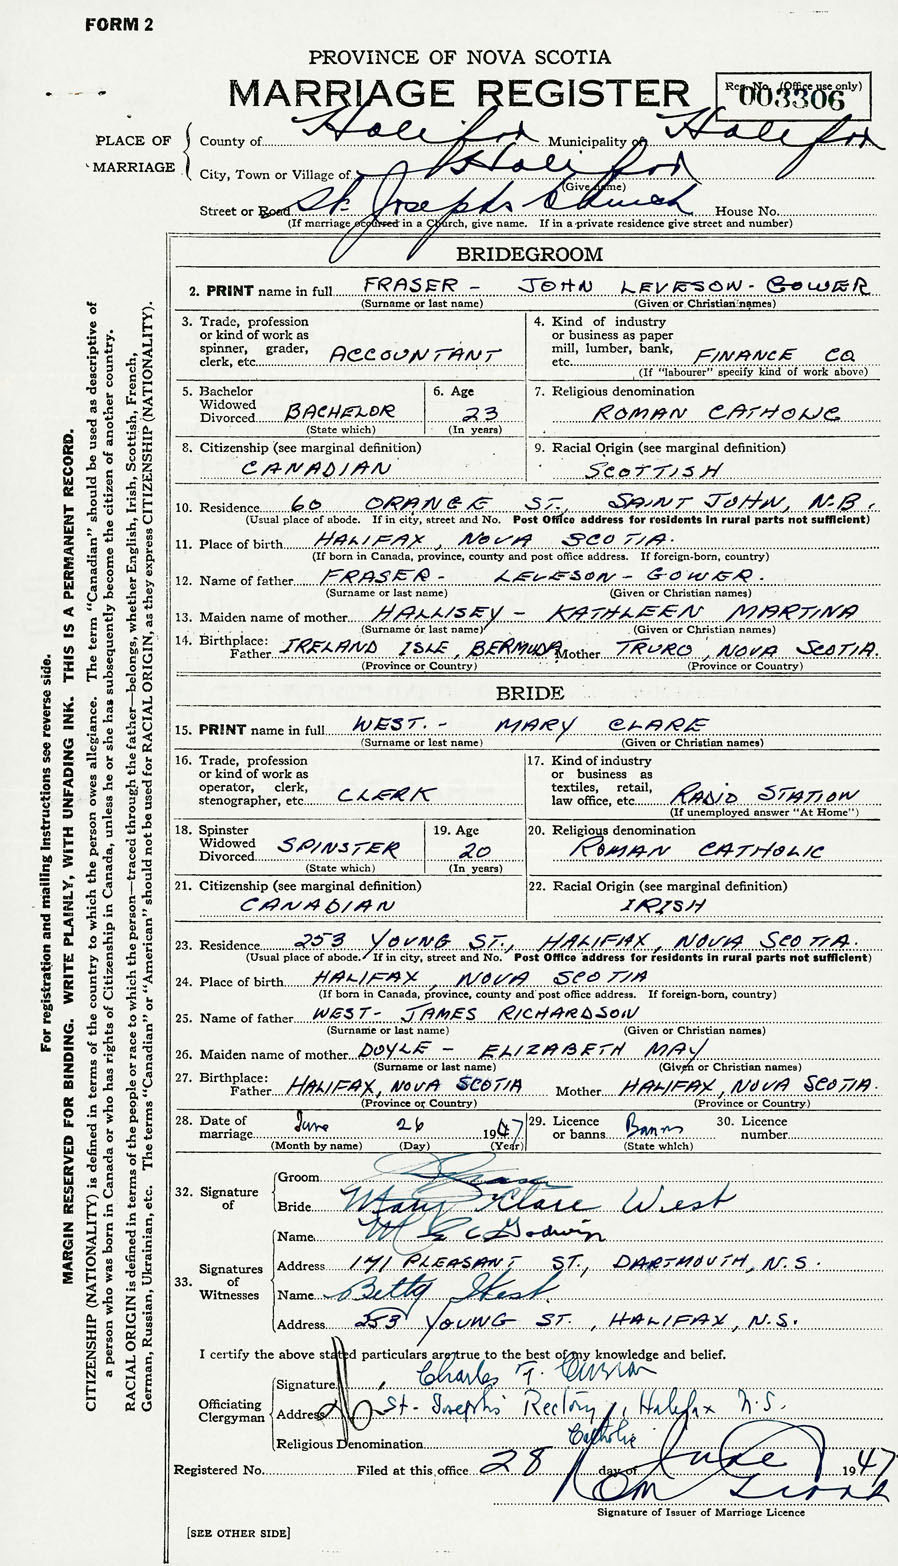 FORM 2
PROVINCE OF NOVA SCOTIA
MARRIAGE REGISTER
Reg. No. (Office use only)
003306
PLACE OF MARRIAGE
County of Halifax Municipality of Halifax
City, Town or Village of Halifax
(Give name)
Street or Road St. Josephs Church House No.
(If marriage occurred in a Church, give name. If in a private residence give street and number)
BRIDEGROOM
2. PRINT name in full FRASER - JOHN LEVESON-GOWER
(Surname or last name) (Given or Christian names)
3. Trade, profession or kind of work as spinner, grader, clerk, etc. ACCOUNTANT
4. Kind of industry or business as paper mill, lumber, bank, etc. FINANCE CO
(If "labourer" specify kind of work above)
5. Bachelor Widowed Divorced BACHELOR
(State which)
6. Age 23
(In years)
7. Religious denomination
ROMAN CATHOLIC
8. Citizenship (see marginal definition)
CANADIAN
9. Racial Origin (see marginal definition)
SCOTTISH
10. Residence 60 ORANGE ST., SAINT JOHN, N.B.
(Usual place of abode. If in city, street and No. Post Office address for residents in rural parts not sufficient)
11. Place of birth HALIFAX, NOVA SCOTIA.
(If born in Canada, province, county and post office address. If foreign-born, country)
12. Name of father FRASER - LEVESON-GOWER.
(Surname or last name) (Given or Christian names)
13. Maiden name of mother HALLISEY - KATHLEEN MARTINA
(Surname or last name) (Given or Christian names)
14. Birthplace: Father IRELAND ISLE, BERMUDA Mother TRURO, NOVA SCOTIA.
(Province or Country) (Province or Country)
BRIDE
15. PRINT name in full WEST. - MARY CLARE
(Surname or last name) (Given or Christian names)
16. Trade, profession or kind of work as operator, clerk, stenographer, etc. CLERK
17. Kind of industry or business as textiles, retail, law office, etc. RADIO STATION
(If unemployed answer "At Home")
18. Spinster Widowed Divorced SPINSTER
(State which)
19. Age 20
(In years)
20. Religious denomination
ROMAN CATHOLIC
21. Citizenship (see marginal definition)
CANADIAN
22. Racial Origin (see marginal definition)
IRISH
23. Residence 253 YOUNG ST., HALIFAX, NOVA SCOTIA.
(Usual place of abode. If in city, street and No. Post Office address for residents in rural parts not sufficient)
24. Place of birth HALIFAX, NOVA SCOTIA
(If born in Canada, province, county and post office address. If foreign-born, country)
25. Name of father WEST - JAMES RICHARDSON
(Surname or last name) (Given or Christian names)
26. Maiden name of mother DOYLE - ELIZABETH MAY
(Surname or last name) (Given or Christian names)
27. Birthplace: Father HALIFAX, NOVA SCOTIA Mother HALIFAX, NOVA SCOTIA.
(Province or Country) (Province or Country)
28. Date of marriage June 26 1947
(Month by name) (Day) (Year)
29. Licence or banns Banns
(State which)
30. Licence number
32. Signature of
Groom Fraser
Bride Mary Clare West
33. Signatures of Witnesses
Name Godwin
Address 171 PLEASANT ST., DARTMOUTH, N.S.
Name Betty West
Address 253 YOUNG ST., HALIFAX, N.S.
I certify the above stated particulars are true to the best of my knowledge and belief.
Officiating Clergyman
Signature Charles F. Curran
Address St. Joseph's Rectory, Halifax N.S.
Religious Denomination Catholic
Registered No. Filed at this office 28 day of June 1947
Signature of Issuer of Marriage Licence
[SEE OTHER SIDE]
For registration and mailing instructions see reverse side.
MARGIN RESERVED FOR BINDING. WRITE PLAINLY, WITH UNFADING INK. THIS IS A PERMANENT RECORD.
CITIZENSHIP (NATIONALITY) is defined in terms of the country to which the person owes allegiance. The term "Canadian" should be used as descriptive of
a person who was born in Canada or who has rights of Citizenship in Canada, unless he or she has subsequently become the citizen of another country.
RACIAL ORIGIN is defined in terms of the people or race to which the person—traced through the father—belongs, whether English, Irish, Scottish, French,
German, Russian, Ukrainian, etc. The terms "Canadian" or "American" should not be used for RACIAL ORIGIN, as they express CITIZENSHIP (NATIONALITY).